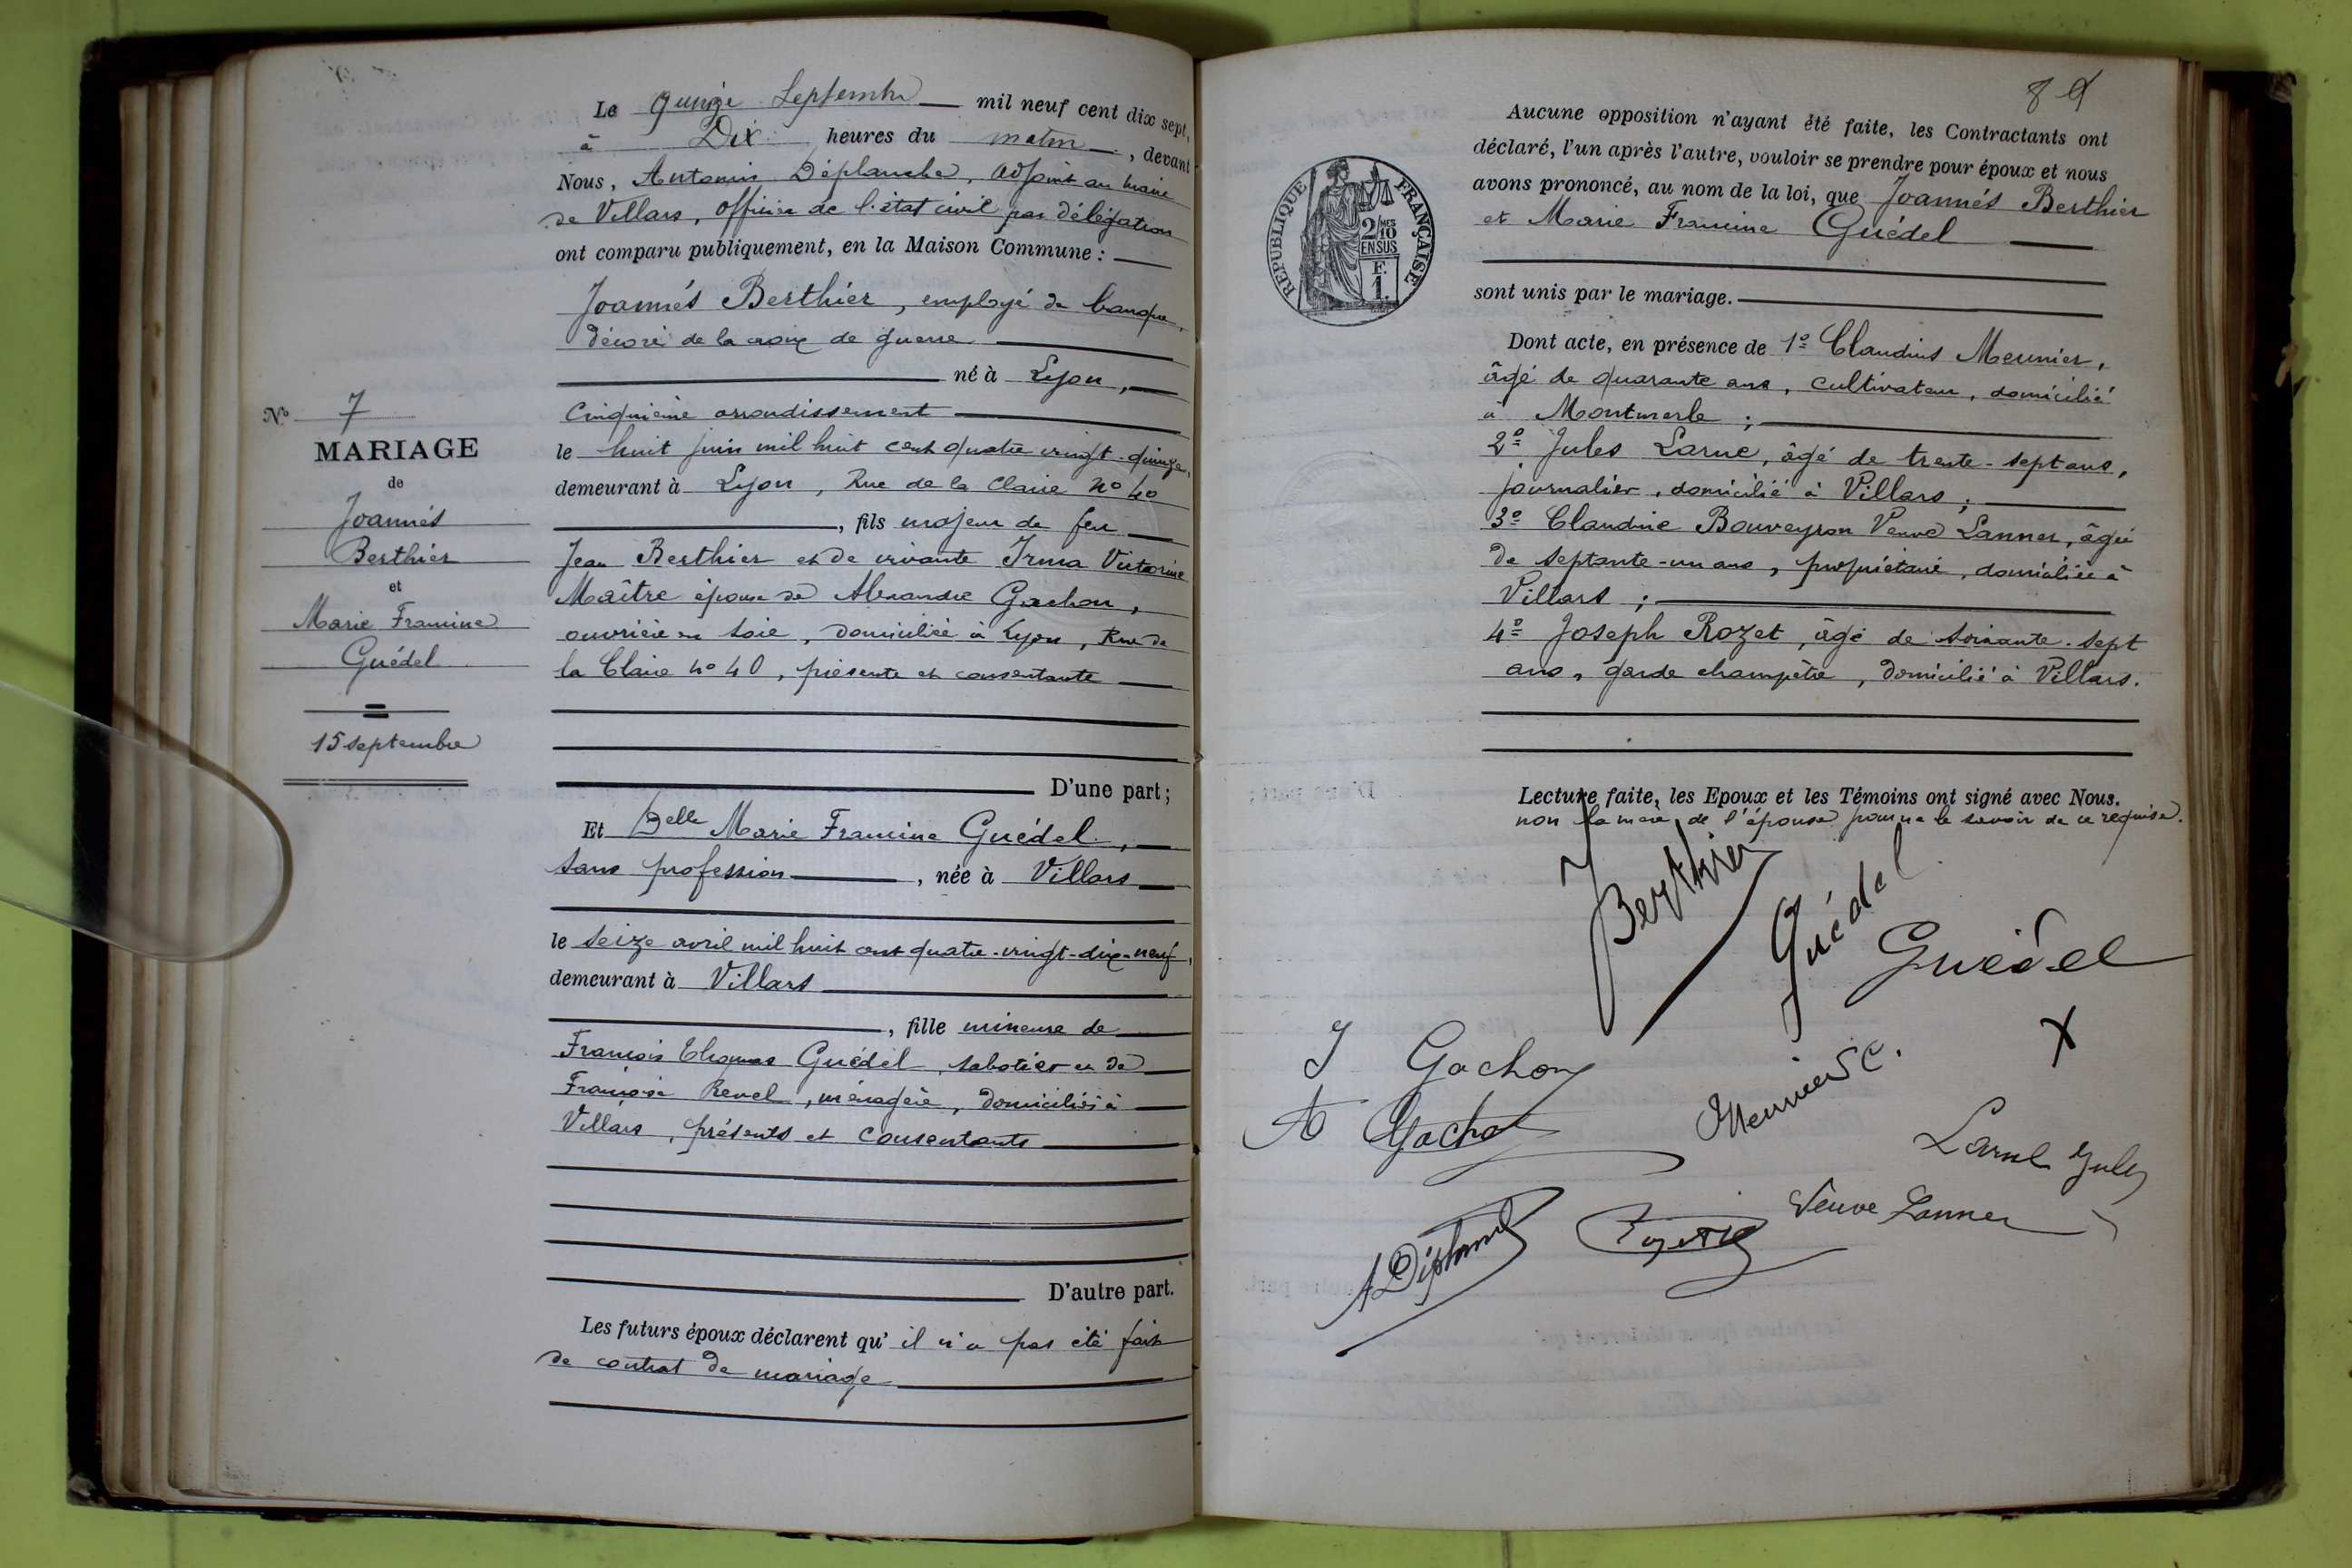 Le quinze Septembre mil neuf cent dix sept,
à Dix heures du matin, devant
Nous, Antonin Déplanche, adjoint au maire
de Villars, officier de l'état civil par délégation
ont comparu publiquement, en la Maison Commune :
Joannés Berthier, employé de banque,
décoré de la croix de guerre
né à Lyon,
cinquième arrondissement
le huit juin mil huit cent quatre vingt-quinze,
demeurant à Lyon, Rue de la Claire No 40
, fils majeur de feu
Jean Berthier et de vivante Irma Victorine
Maître épouse de Alexandre Gachon,
ouvrière en soie, domiciliée à Lyon, Rue de
la Claire No 40, présente et consentante
D'une part ;
Et Delle Marie Francine Guédel,
sans profession, née à Villars
le seize avril mil huit cent quatre-vingt-dix-neuf,
demeurant à Villars
, fille mineure de
François Thomas Guédel, sabotier et de
Françoise Revel, ménagère, domiciliés à
Villars, présents et consentants
D'autre part.
Les futurs époux déclarent qu'il n'a pas été fait
de contrat de mariage
No 7
MARIAGE
de
Joannés
Berthier
et
Marie Francine
Guédel
15 septembre
89
Aucune opposition n'ayant été faite, les Contractants ont
déclaré, l'un après l'autre, vouloir se prendre pour époux et nous
avons prononcé, au nom de la loi, que Joannés Berthier
et Marie Francine Guédel
sont unis par le mariage.
RÉPUBLIQUE FRANÇAISE
2/MES
10
EN SUS
F.
1.
Dont acte, en présence de 1º Claudius Meunier,
âgé de quarante ans, cultivateur, domicilié
à Montmerle ;
2º Jules Larue, âgé de trente-sept ans,
journalier, domicilié à Villars ;
3º Claudine Bouveyron Veuve Lanner, âgée
de septante-un ans, propriétaire, domiciliée à
Villars ;
4º Joseph Rozet, âgé de soixante-sept
ans, garde champêtre, domicilié à Villars.
Lecture faite, les Epoux et les Témoins ont signé avec Nous.
non la mère de l'épouse pour ne le savoir de ce requise.
J Berthier
Guédel
Guédel
J Gachon
X
A Gachon
Meunier C.
Larue Jules
Veuve Lanner
A Déplanche